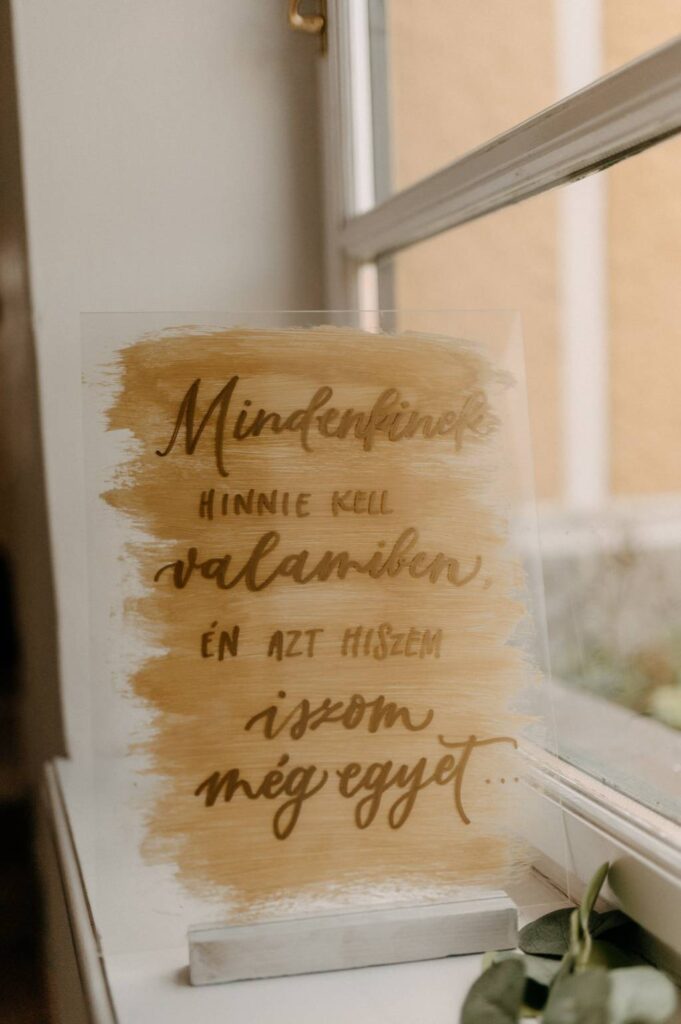 Mindenkinek
HINNIE KELL
valamiben,
ÉN AZT HISZEM
iszom
még egyet...